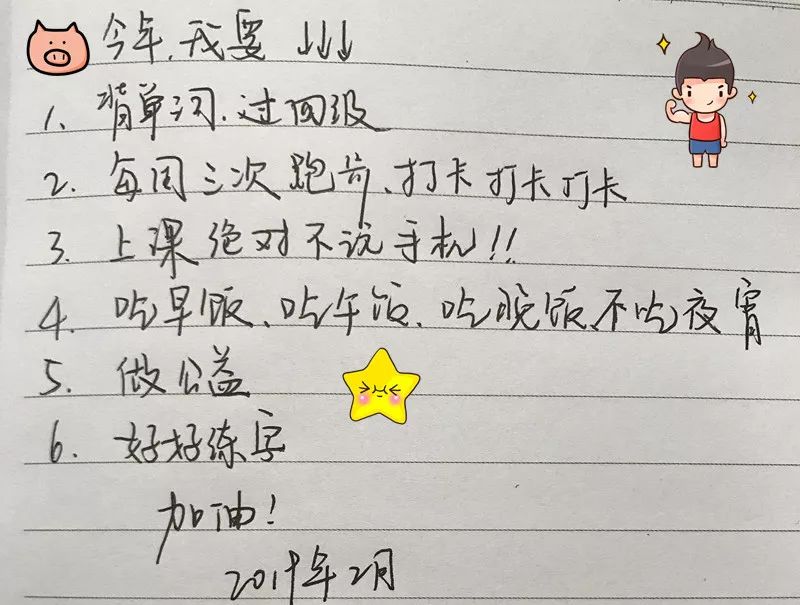 今年,我要↓↓↓
1. 背单词,过四级
2. 每周三次跑步、打卡打卡打卡
3. 上课绝对不玩手机!!
4. 吃早饭、吃午饭、吃晚饭、不吃夜宵
5. 做公益
6. 好好练字
加油!
2019年2月